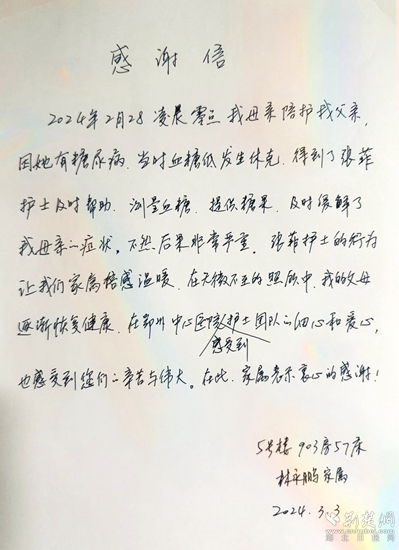 感谢信
2024年2月28 凌晨零点 我母亲陪护我父亲,
因她有糖尿病. 当时血糖低发生休克. 得到了张菲
护士及时帮助. 测量血糖. 提供糖果. 及时缓解了
我母亲的症状. 不然后果非常严重. 张菲护士的行为
让我们家属倍感温暖. 在无微不至的照顾中. 我的父母
逐渐恢复健康. 在鄂州中心医院护士团队的细心和爱心,
感受到
也感受到您们的辛苦与伟大. 在此. 家属表示衷心的感谢!
5号楼 903房57床
林永鹏家属
2024. 3.3
荆楚网
湖北日报网